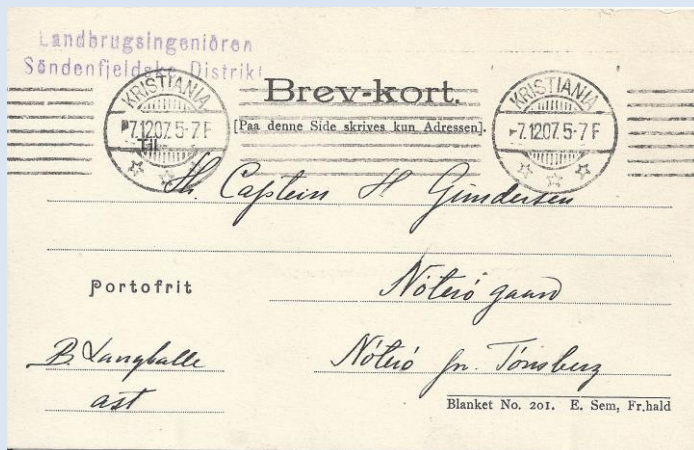 Landbrugsingeniören
Söndenfjeldske Distrikt
Brev-kort.
[Paa denne Side skrives kun Adressen].
KRISTIANIA
7.12.07. 5-7 F
KRISTIANIA
7.12.07. 5-7 F
Til
Hr. Captein H Gundersen
Portofrit
Nöterö gaard
B Langballe
Nöterö pr. Tönsberg
ast
Blanket No. 201. E. Sem, Fr.hald